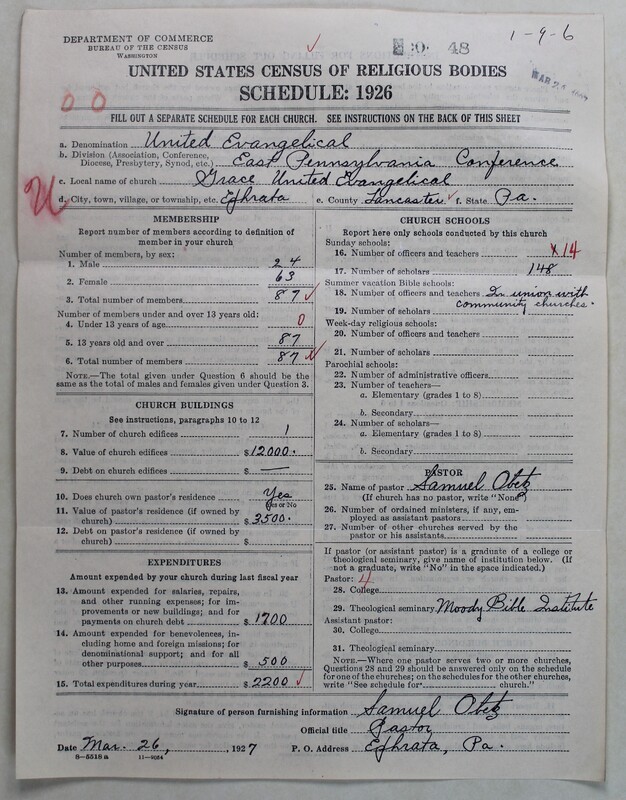 DEPARTMENT OF COMMERCE
BUREAU OF THE CENSUS
WASHINGTON
48
1-9-6
UNITED STATES CENSUS OF RELIGIOUS BODIES
SCHEDULE: 1926
0 0
FILL OUT A SEPARATE SCHEDULE FOR EACH CHURCH. SEE INSTRUCTIONS ON THE BACK OF THIS SHEET
a. Denomination United Evangelical
b. Division (Association, Conference, Diocese, Presbytery, Synod, etc.) East Pennsylvania Conference
c. Local name of church Grace United Evangelical
d. City, town, village, or township, etc. Ephrata e. County Lancaster f. State Pa.
MEMBERSHIP
Report number of members according to definition of
member in your church
Number of members, by sex:
1. Male 24
2. Female 63
3. Total number of members 87
Number of members under and over 13 years old:
4. Under 13 years of age 0
5. 13 years old and over 87
6. Total number of members 87
NOTE.—The total given under Question 6 should be
the same as the total of males and females given under Question 3.
CHURCH BUILDINGS
See instructions, paragraphs 10 to 12
7. Number of church edifices 1
8. Value of church edifices $12000.
9. Debt on church edifices $ —
10. Does church own pastor's residence Yes
Yes or No
11. Value of pastor's residence (if owned by
church) $3500.
12. Debt on pastor's residence (if owned by
church) $
EXPENDITURES
Amount expended by your church during last fiscal year
13. Amount expended for salaries, repairs,
and other running expenses; for im-
provements or new buildings; and for
payments on church debt $1700
14. Amount expended for benevolences, in-
cluding home and foreign missions; for
denominational support; and for all
other purposes $500
15. Total expenditures during year $2200
CHURCH SCHOOLS
Report here only schools conducted by this church
Sunday schools:
16. Number of officers and teachers x14
17. Number of scholars 148
Summer vacation Bible schools:
18. Number of officers and teachers In union with
19. Number of scholars community churches.
Week-day religious schools:
20. Number of officers and teachers
21. Number of scholars
Parochial schools:
22. Number of administrative officers
23. Number of teachers—
a. Elementary (grades 1 to 8)
b. Secondary
24. Number of scholars—
a. Elementary (grades 1 to 8)
b. Secondary
PASTOR
25. Name of pastor Samuel Obetz
(If church has no pastor, write "None")
26. Number of ordained ministers, if any, em-
ployed as assistant pastors
27. Number of other churches served by the
pastor or his assistants
If pastor (or assistant pastor) is a graduate of a college or
theological seminary, give name of institution below. (If
not a graduate, write "No" in the space indicated.)
Pastor: 4
28. College
29. Theological seminary Moody Bible Institute
Assistant pastor:
30. College
31. Theological seminary
NOTE.—Where one pastor serves two or more churches,
Questions 28 and 29 should be answered only on the schedule
for one of the churches; on the schedules for the other churches,
write "See schedule for church."
Signature of person furnishing information Samuel Obetz
Official title Pastor
Date Mar. 26, , 1927 P. O. Address Ephrata, Pa.
8-5518 a